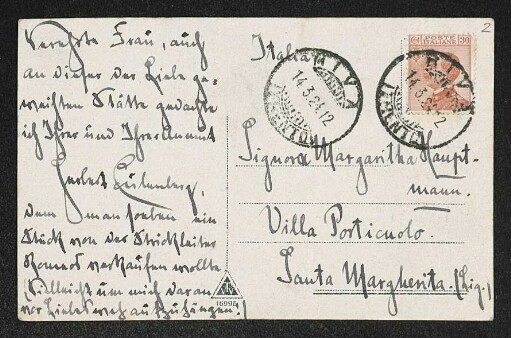 Verehrte Frau, auch
an dieser der Liebe ge-
weihten Stätte gedachte
ich Ihrer und Ihrer Anmut
Herbert Eulenberg,
dem man soeben ein
Stück von der Strickleiter
Romeos verkaufen wollte
(Vielleicht um mich daran
vor Liebesweh aufzuhängen!)
Italia
RIVA
14.3.24.12
(TRENTO)
RIVA
14.3.24.12
(TRENTO)
POSTE ITALIANE
30
2
Signora Margaritha Haupt-
mann.
Villa Porticuolo.
Santa Margherita. (Lig.)